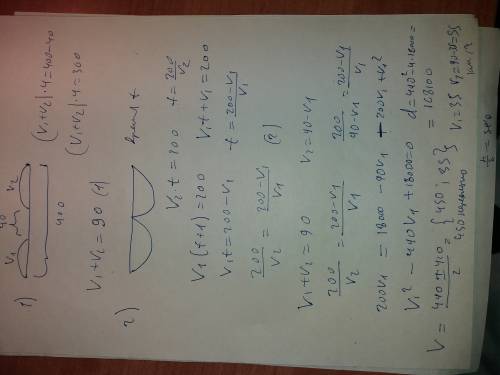 1)
V₁ 40 V₂
400
(V₁+V₂)·4=400-40
(V₁+V₂)·4=360
V₁+V₂=90 (1)
2)
время t
V₂·t=200 t=200/V₂
V₁(t+1)=200 V₁t+V₁=200
V₁t=200-V₁ t=(200-V₁)/V₁
200/V₂=(200-V₁)/V₁ (2)
V₁+V₂=90 V₂=90-V₁
200/V₂=(200-V₁)/V₁ 200/(90-V₁)=(200-V₁)/V₁
200V₁=1800-90V₁-200V₁+V₁²
V₁²-490V₁+18000=0 d=490²-4·18000=
=168100
V=(490±410)/2={450; 35}
V₁=35 V₂=90-35=55